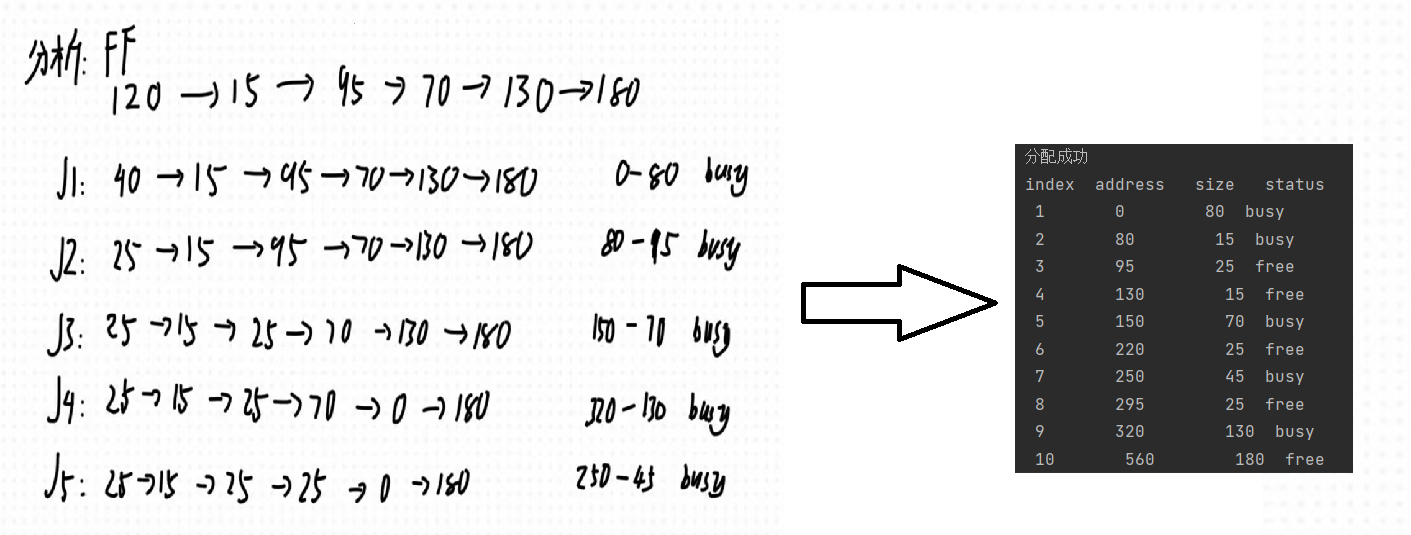 分析: FF
120 → 15 → 95 → 70 → 130 → 180
J1: 40 → 15 → 95 → 70 → 130 → 180 0-80 busy
J2: 25 → 15 → 95 → 70 → 130 → 180 80-95 busy
J3: 25 → 15 → 25 → 70 → 130 → 180 150-70 busy
J4: 25 → 15 → 25 → 70 → 0 → 180 320-130 busy
J5: 25 → 15 → 25 → 25 → 0 → 180 250-45 busy
分配成功
index address size status
1 0 80 busy
2 80 15 busy
3 95 25 free
4 130 15 free
5 150 70 busy
6 220 25 free
7 250 45 busy
8 295 25 free
9 320 130 busy
10 560 180 free